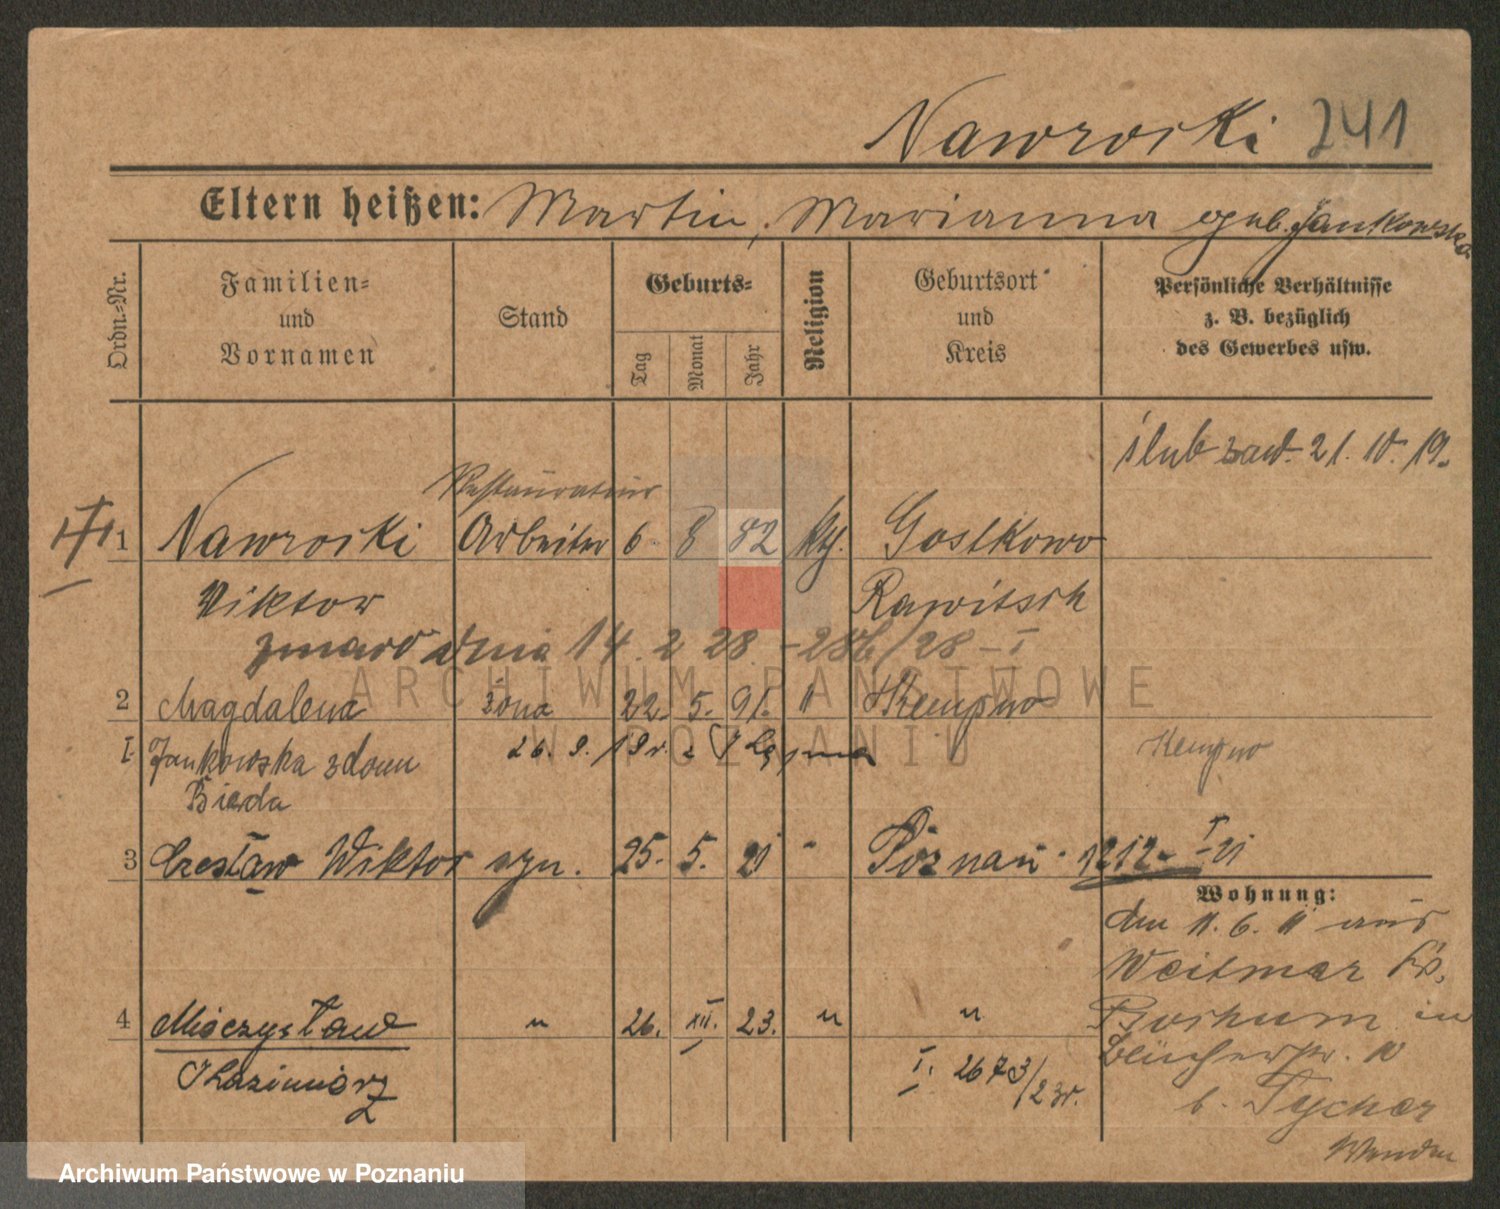 Nawrocki 241
Eltern heißen: Martin, Marianna geb. Jankowska
Ordn.=Nr.
Familien=
und
Vornamen
Stand
Geburts=
Tag
Monat
Jahr
Religion
Geburtsort
und
Kreis
Persönliche Verhältnisse
z. B. bezüglich
des Gewerbes usw.
ślub zaw. 21. 10. 19.
Restaurateur
1 Nawrocki Arbeiter 6. 8 82 kth. Gostkowo
Viktor Rawitsch
zmarł dnia 14. 2 28 - 286/28 - I
2 Magdalena żona 22. 5. 91. " Kempno
I. Jankowska z domu 26. 9. 19 r. z Kempno
Bierda
3 Czesław Wiktor syn. 25. 5. 21 " Poznań 1212 - I 21
Wohnung:
den 11. 6. 11 aus
Weitmar Krs.
Bochum in
Blücherstr. 10
b. Tycher
4 Mieczysław " 26. XII. 23. " "
Kazimierz I. 2673/23r.
ARCHIWUM PAŃSTWOWE
W POZNANIU
Archiwum Państwowe w Poznaniu